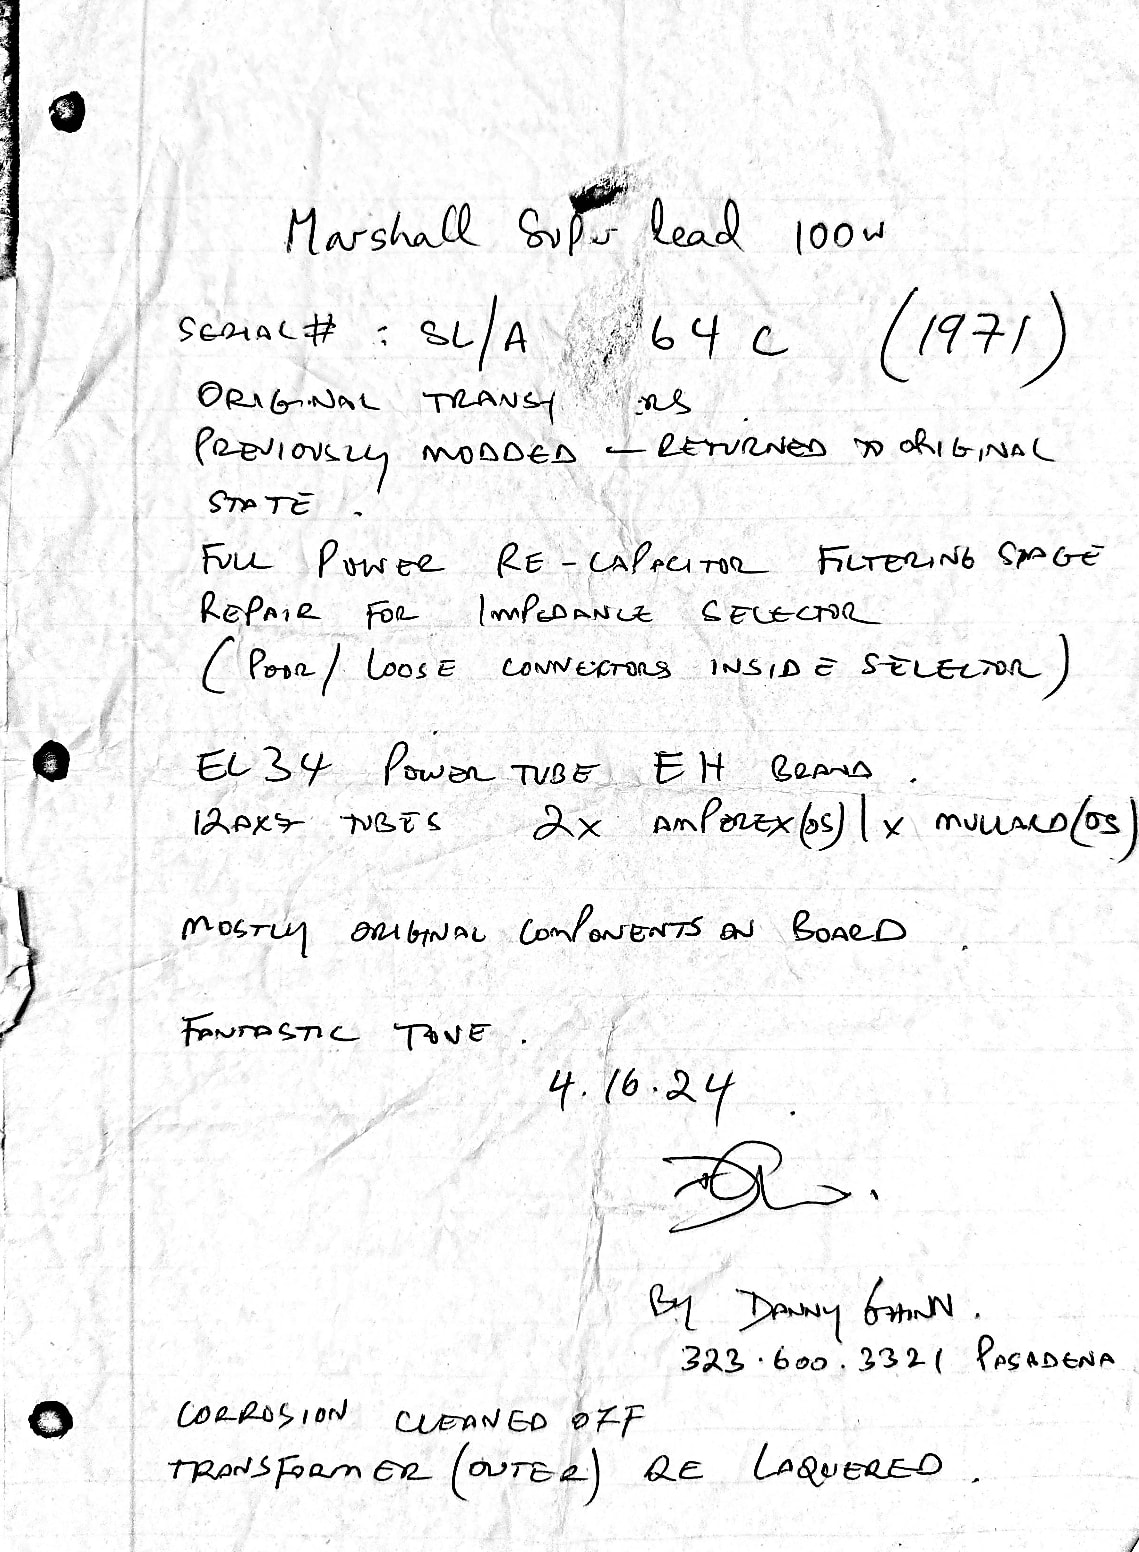 Marshall Super lead 100w
SERIAL# : SL/A 64 C (1971)
ORIGINAL
PREVIOUSLY MODDED — RETURNED TO ORIGINAL
STATE .
FULL POWER RE-CAPACITOR FILTERING STAGE
REPAIR FOR IMPEDANCE SELECTOR
(POOR/LOOSE CONNECTORS INSIDE SELECTOR)
EL34 POWER TUBE EH BRAND .
12AX7 TUBES 2x AMPEREX(OS) 1x MULLARD(OS)
MOSTLY ORIGINAL COMPONENTS ON BOARD .
FANTASTIC TONE .
4.16.24 .
BY DANNY .
323.600.3321 PASADENA
CORROSION CLEANED OFF
TRANSFORMER (OUTER) RE LAQUERED .